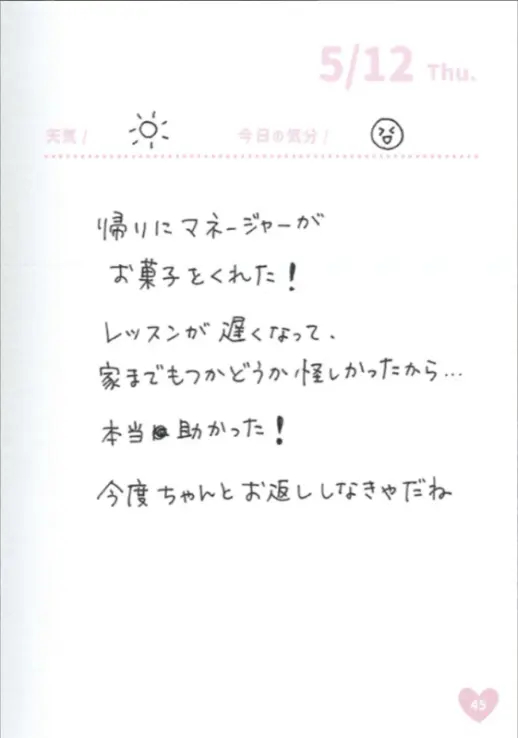 5/12 Thu.
天気 / 今日の気分 /
帰りにマネージャーが
お菓子をくれた!
レッスンが遅くなって、
家までもつかどうか怪しかったから…
本当に助かった!
今度ちゃんとお返ししなきゃだね
45